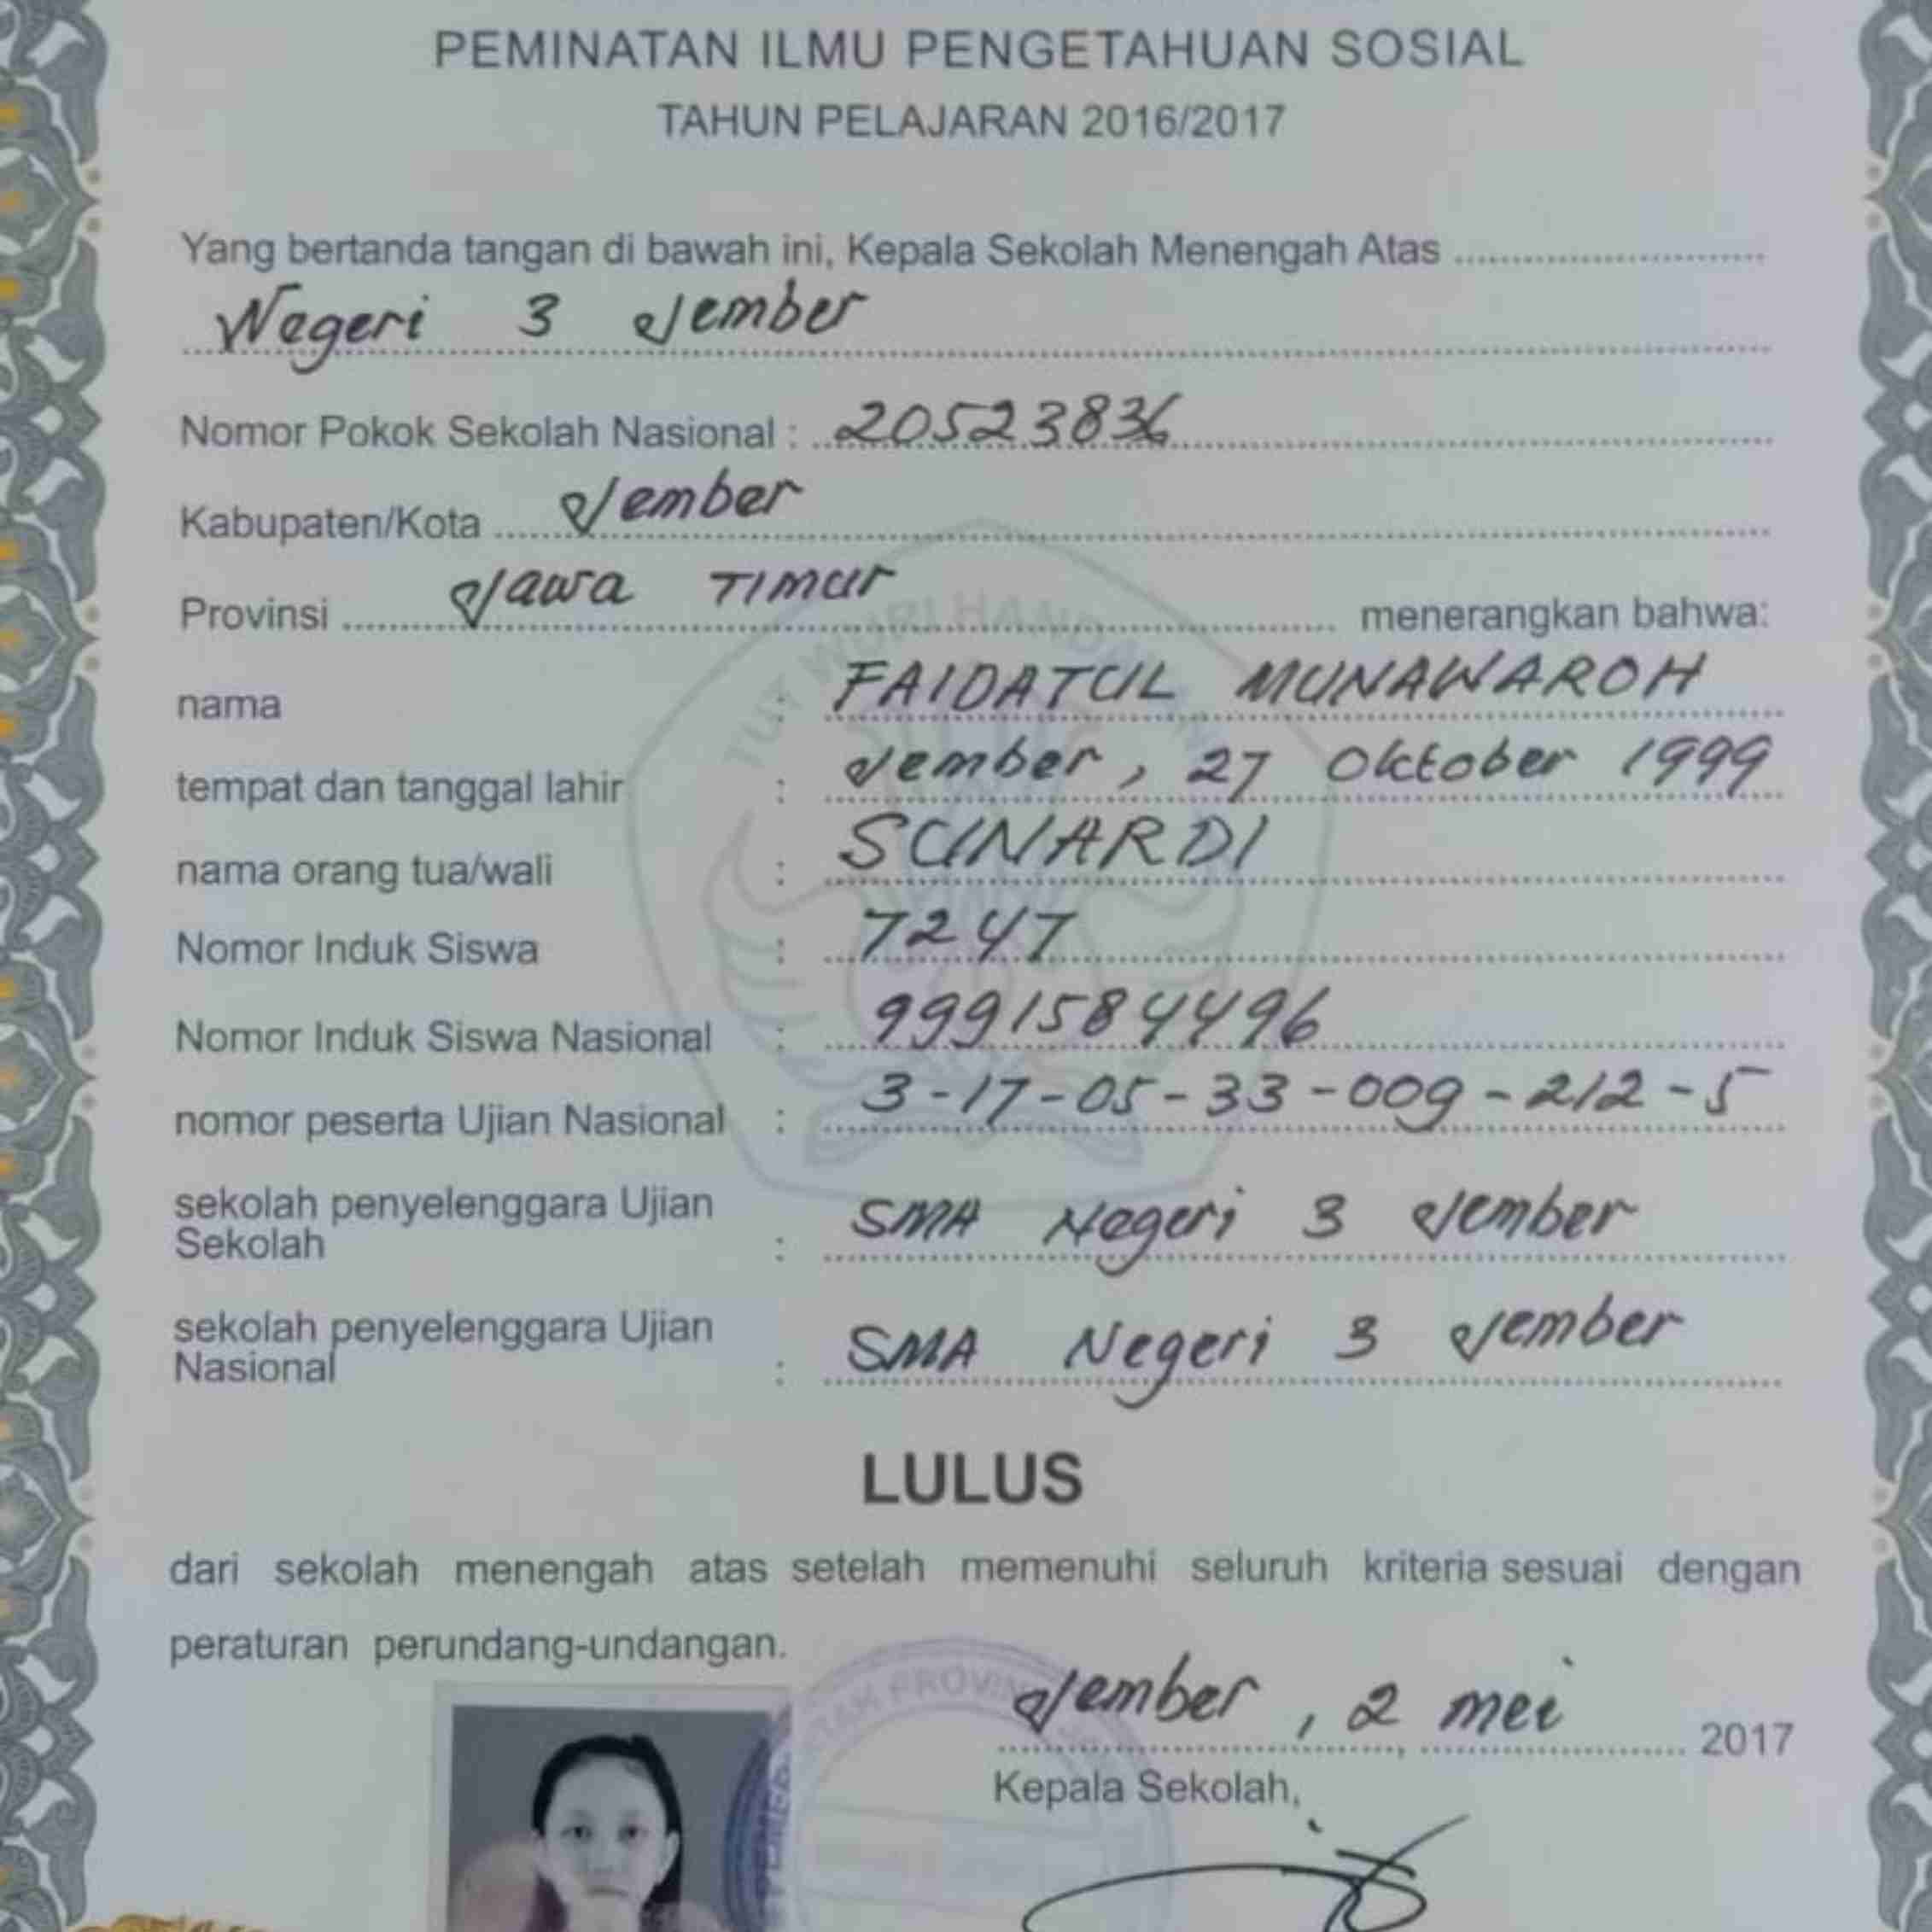 PEMINATAN ILMU PENGETAHUAN SOSIAL
TAHUN PELAJARAN 2016/2017
Yang bertanda tangan di bawah ini, Kepala Sekolah Menengah Atas
Negeri 3 Jember
Nomor Pokok Sekolah Nasional : 20523836
Kabupaten/Kota Jember
Provinsi Jawa Timur menerangkan bahwa:
nama : FAIDATUL MUNAWAROH
tempat dan tanggal lahir : Jember, 27 Oktober 1999
nama orang tua/wali : SUNARDI
Nomor Induk Siswa : 7247
Nomor Induk Siswa Nasional : 9991584496
nomor peserta Ujian Nasional : 3-17-05-33-009-212-5
sekolah penyelenggara Ujian
Sekolah : SMA Negeri 3 Jember
sekolah penyelenggara Ujian
Nasional : SMA Negeri 3 Jember
LULUS
dari sekolah menengah atas setelah memenuhi seluruh kriteria sesuai dengan
peraturan perundang-undangan.
Jember, 2 mei 2017
Kepala Sekolah,